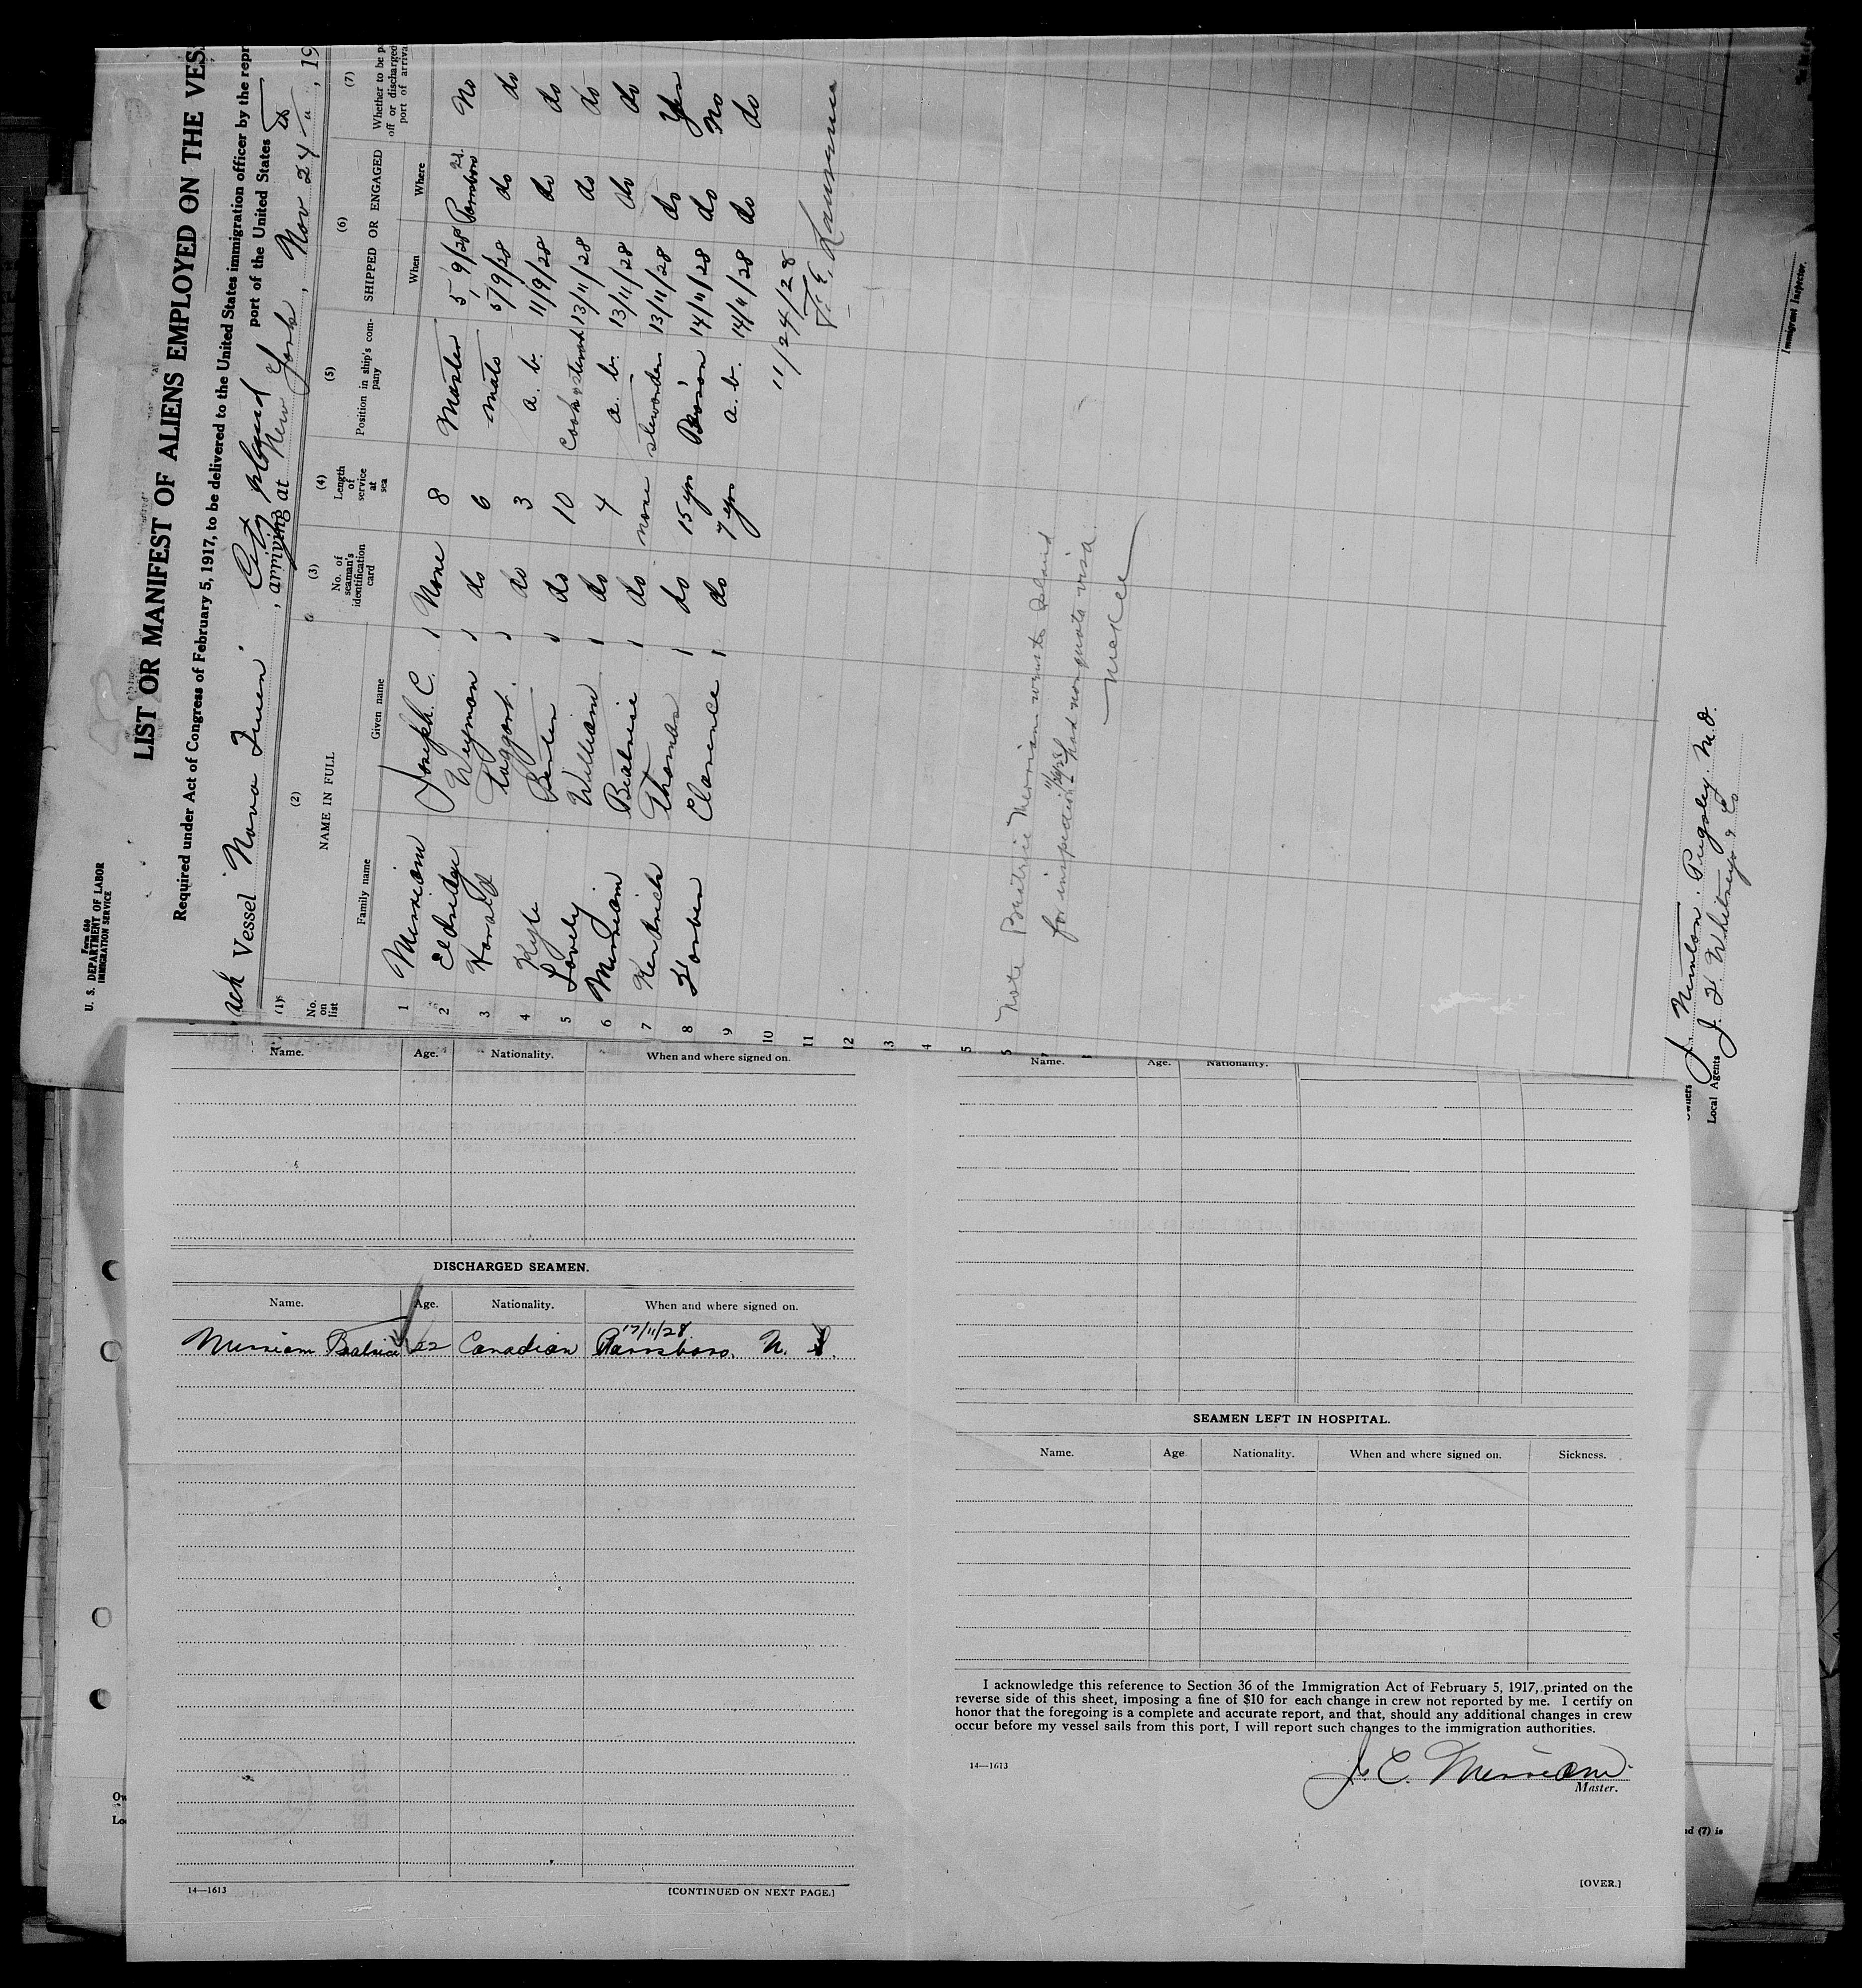 Form 680
U. S. DEPARTMENT OF LABOR
IMMIGRATION SERVICE
LIST OR MANIFEST OF ALIENS EMPLOYED ON THE VES
Required under Act of Congress of February 5, 1917, to be delivered to the United States immigration officer by the repr
port of the United States
Vessel Nova Queen, arriving at New York, Nov 24, 19
(1) No. on list
(2) NAME IN FULL
Family name Given name
(3) No. of seaman's identification card
(4) Length of service at sea
(5) Position in ship's company
(6) SHIPPED OR ENGAGED
When Where
(7) Whether to be p off or discharged port of arriva
1 Merriam Joseph C. None 8 Master 5/9/28 Parrsboro No
2 Eldridge Weyman do 6 mate 5/9/28 do do
3 Taggart do 3 a. b. 11/9/28 do do
4 Kyle do 10 Cook & steward 13/11/28 do do
5 Lovely William do 4 a. b. 13/11/28 do do
6 Merriam Beatrice do none 13/11/28 do Yes
7 Kendrick Thomas do 15 yrs Bosun 14/11/28 do No
8 Clarence do 7 yrs a. b. 14/11/28 do do
9
10
11
12
13
4
5
11/24/28
Note Beatrice Merriam went to Island
for inspection had non quota visa
McKee
Immigrant Inspector.
Owners J. Newton Pugsley M.D.
Local Agents J. F. Whitney & Co
Name. Age. Nationality. When and where signed on.
DISCHARGED SEAMEN.
Name. Age. Nationality. When and where signed on.
17/11/28
Merriam Beatrice 22 Canadian Parrsboro. N. S.
14—1613
[CONTINUED ON NEXT PAGE.]
Name. Age. Nationality.
SEAMEN LEFT IN HOSPITAL.
Name. Age Nationality. When and where signed on. Sickness.
I acknowledge this reference to Section 36 of the Immigration Act of February 5, 1917, printed on the
reverse side of this sheet, imposing a fine of $10 for each change in crew not reported by me. I certify on
honor that the foregoing is a complete and accurate report, and that, should any additional changes in crew
occur before my vessel sails from this port, I will report such changes to the immigration authorities.
14—1613
J. C. Merriam
Master.
[OVER.]
Ow
Lo
ed (7) is